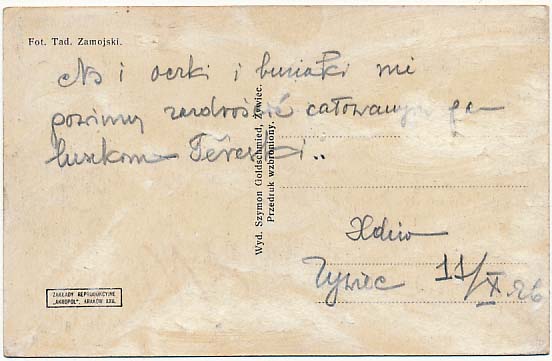 Fot. Tad. Zamojski.
No i oczki i buziaki nie
powinny zazdrościć całowanym pa-
luszkom
Wyd. Szymon Goldschmied, Żywiec.
Przedruk wzbroniony.
Żywiec 11/X 26
ZAKŁADY REPRODUKCYJNE
„AKROPOL”, KRAKÓW